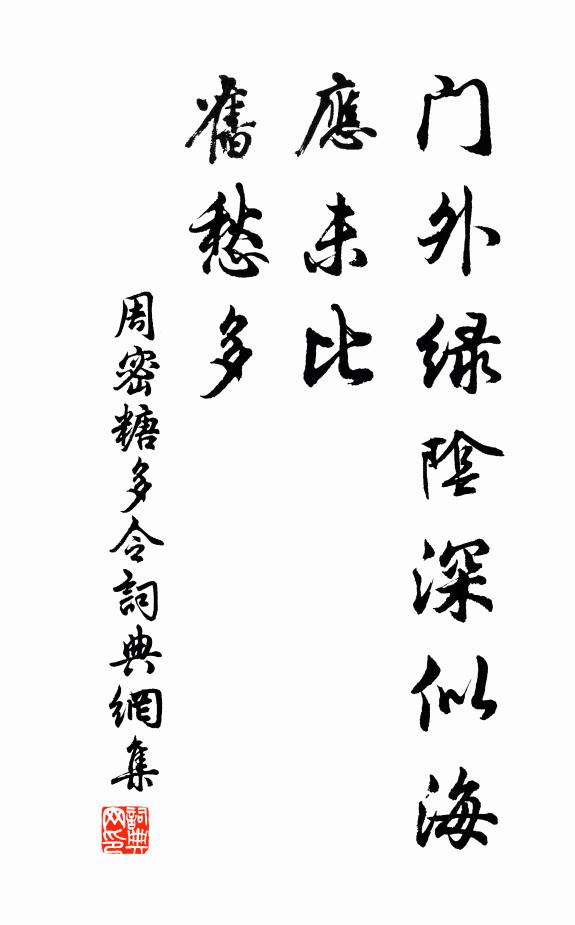 门外绿陰深似海
應未比
舊愁多
周密糖多令詞典網集
詞典网印